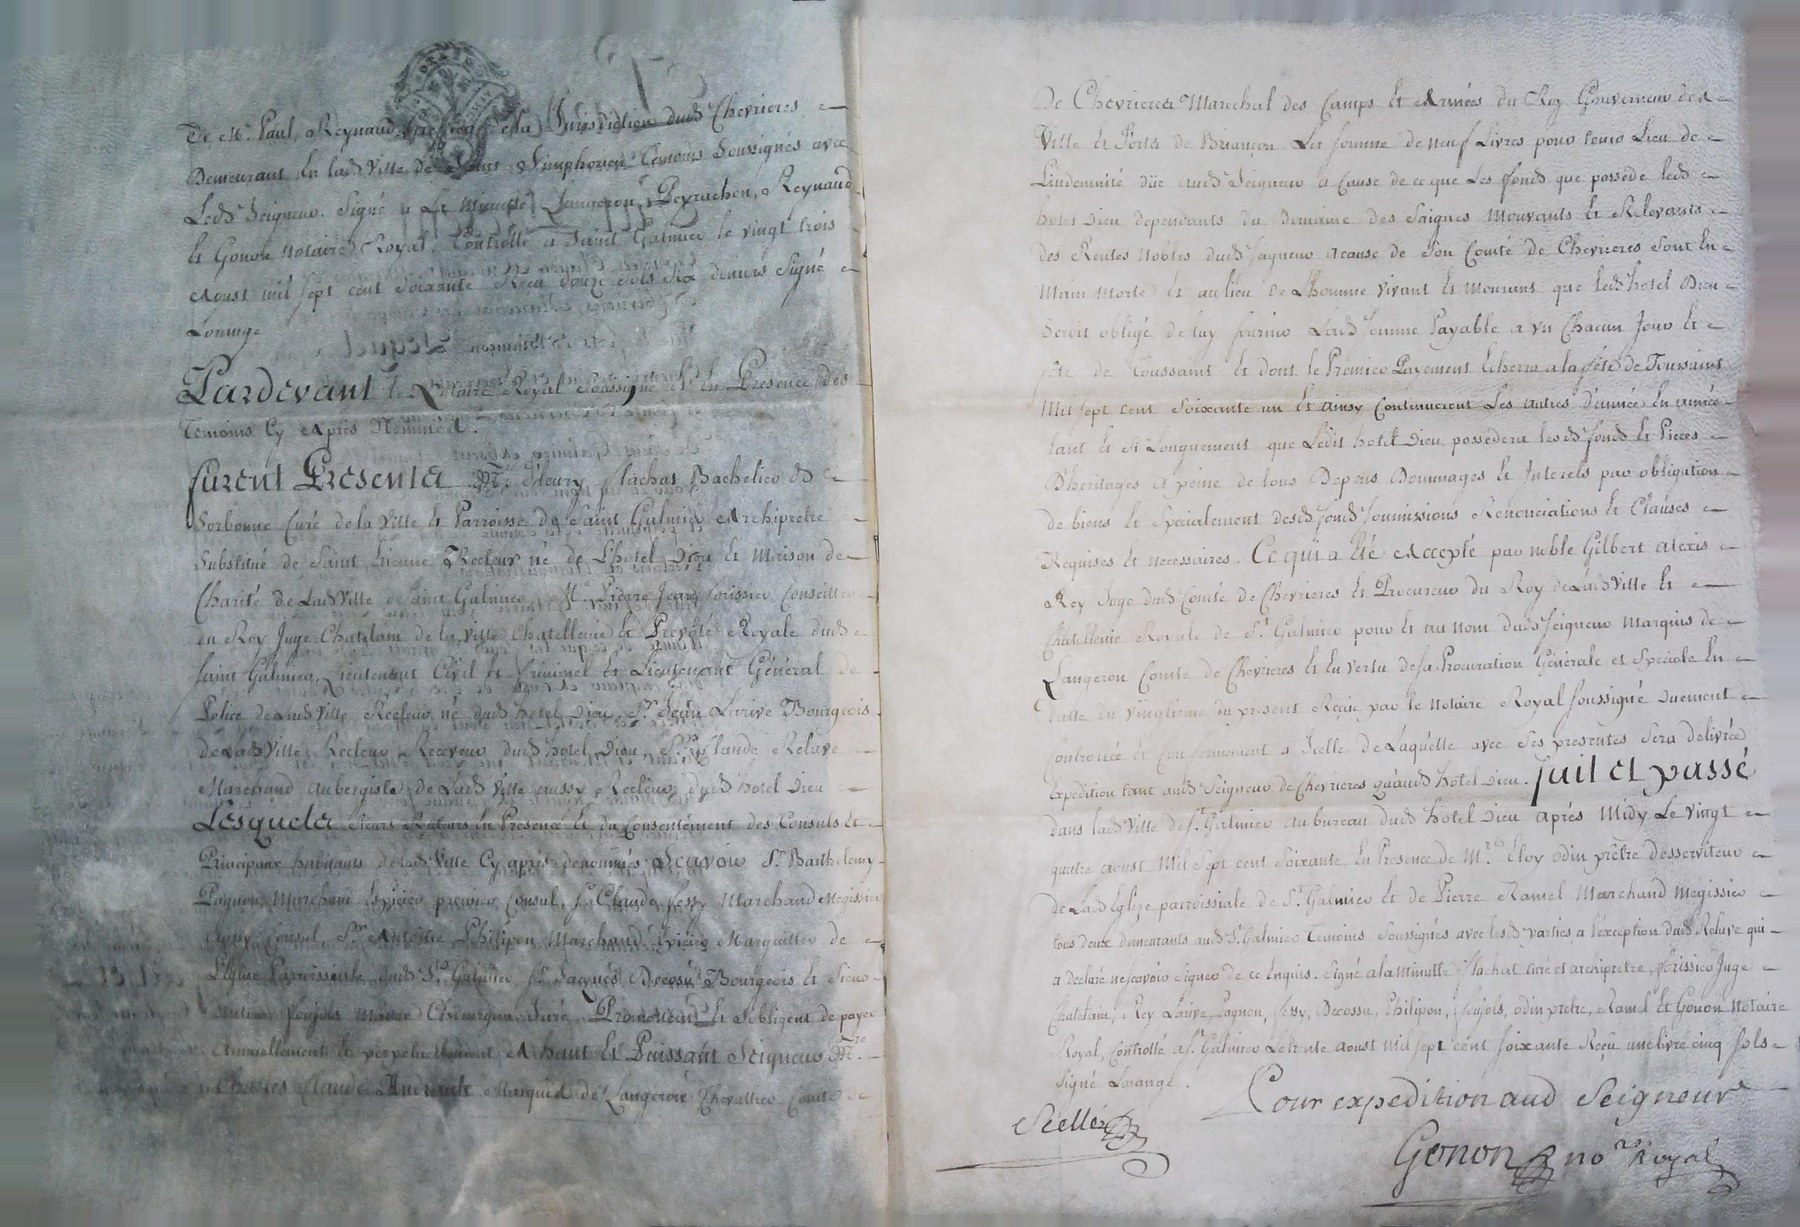 de Mr. Paul Reynaud greffier de la Jurisdiction dudt Chevrieres
Demeurant en ladt ville de Saint Simphorien Temoins soussignés avec
Ledt Seigneur. Signé a la minutte Langeron, Peyrachon, Reynaud
Et Gonon Notaire Royal, Controllé a Saint Galmier le vingt trois
Aoust mil sept cent soixante Reçu douze sols six deniers Signé
Lorange
Pardevant le Notaire Royal Soussigné Et En Presence des
Temoins Cy Après Nommés.
furent Presents Mr. fleury flachat Bachelier de
Sorbonne Curé de la Ville et Parroisse de Saint Galmier Archiprêtre
Substitué de Saint Etienne Recteur né de L'hotel Dieu et Maison de
Charité de Ladt Ville de Saint Galmier, Mr. Pierre Jean forissier Conseiller
du Roy Juge Chatelain de la ville Chatellenie et Prevôté Royale dudt
Saint Galmier, Lieutenant Civil et Criminel et Lieutenant Général de
Police de Ladt Ville Recteur né dudt hotel Dieu, Sr. Jean Larive Bourgeois
de Ladt Ville, Recteur Receveur dudt hotel Dieu, Sr. Claude Relave
Marchand aubergiste de Ladt Ville aussy Recteur dudt hotel Dieu
Lesquels sieurs Recteurs En Presence Et du Consentement des Consuls Et
Principaux habitants de ladt Ville Cy après denommés sçavoir Sr. Barthelemy
Pagnon Marchand Epicier premier Consul, Sr. Claude Jessy Marchand Megissier
aussy Consul, Sr. Antoine Philipon Marchand Epicier Marguillier de
L'Eglise Parroissiale dudt St. Galmier, Sr. Jacques Decossu Bourgeois Et Sieur
foujols Maitre Chirurgien Juré, Promettent Et s'obligent de payer
Annuellement Et perpetuellement A haut Et Puissant Seigneur Mre.
Charles Claude Andrault Marquis de Langeron Chevallier Comte de
De Chevrieres Marechal des Camps Et Armées du Roy Gouverneur des
Ville Et Forts de Briançon La somme de neuf Livres pour tout Lieu de
L'indemnité düe audt Seigneur a Cause de ce que Les fonds que possède ledt
hotel Dieu dependants du Domaine des Saignes Mouvants Et Relevants
des Rentes Nobles dudt Seigneur acause de Son Comté de Chevrieres Sont En
Main Morte Et au lieu de L'homme Vivant Et Mourant que ledt hotel Dieu
Seroit obligé de luy fournir Ladt somme Payable a un Chacun Jour Et
fête de Toussaint Et dont le Premier Payement Echerra a la fête de Toussaint
Mil sept cent Soixante un Et Ainsy Continueront Les autres d'année En année
tant Et Si Longuement que Ledit hotel Dieu possedera lesdt fonds Et Pieces
D'heritages a peine de tous Depens Dommages Et Interets par obligation
de biens Et Specialement desdt fonds soumissions Renonciations Et Clauses
Requises et necessaires. Ce qui a Eté Accepté par noble Gilbert alexis
Rey Juge dudt Comté de Chevrieres Et Procureur du Roy de Ladt Ville Et
Chatellenie Royale de St. Galmier pour Et au nom dudt Seigneur Marquis de
Langeron Comte de Chevrieres Et En Vertu de sa Procuration Générale et Speciale En
datte du vingtieme du present Reçue par le Notaire Royal soussigné duement
Controllée Et Conformement a Icelle de Laquelle avec ses presentes Sera delivrée
Expedition tant audt Seigneur de Chevrieres qu'audt hotel Dieu. fait et passé
dans ladt Ville de St. Galmier au bureau dudt hotel Dieu Après Midy Le Vingt
quatre Aoust Mil Sept cent Soixante, En Presence de Mre. Eloy Odin prêtre desserviteur
de Ladt Eglise parroissiale de St. Galmier et de Pierre Ramel Marchand Megissier
tous deux demeurants audt St. Galmier Temoins Soussignés avec lesdt parties a l'exception dudt Relave qui
a declaré ne sçavoir Signer de ce Enquis. Signé a la minutte flachat curé et archiprêtre, forissier Juge
Chatelain, Rey, Larive, Pagnon, Jessy, Decossu, Philipon, foujols, odin prêtre, Ramel Et Gonon Notaire
Royal, Controllé a St. Galmier Le trente aoust mil sept cent soixante Reçu une livre cinq sols
Signé Lorange.
Pour expedition aud Seigneur
Scellé
Gonon nore Royal